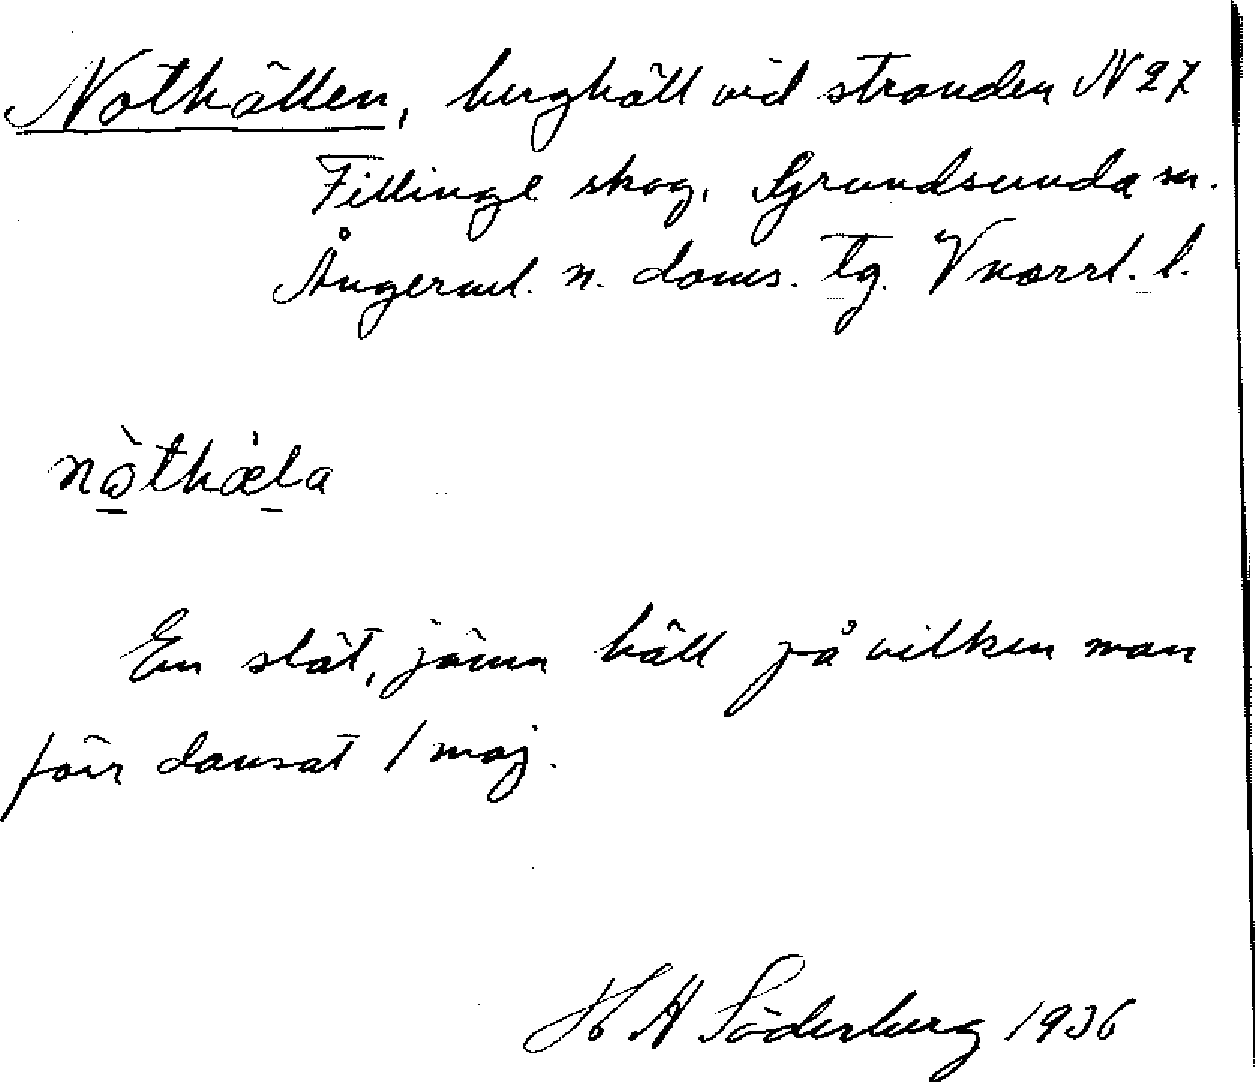 Nothällen, berghäll vid stranden N 27
Fillinge skog, Grundsunda sn.
Ångerml. n. doms. tg. Vnorrl. l.
nòthæ̀la
En slät, jämn häll på vilken man
förr dansat 1 maj.
H A Söderberg 1936